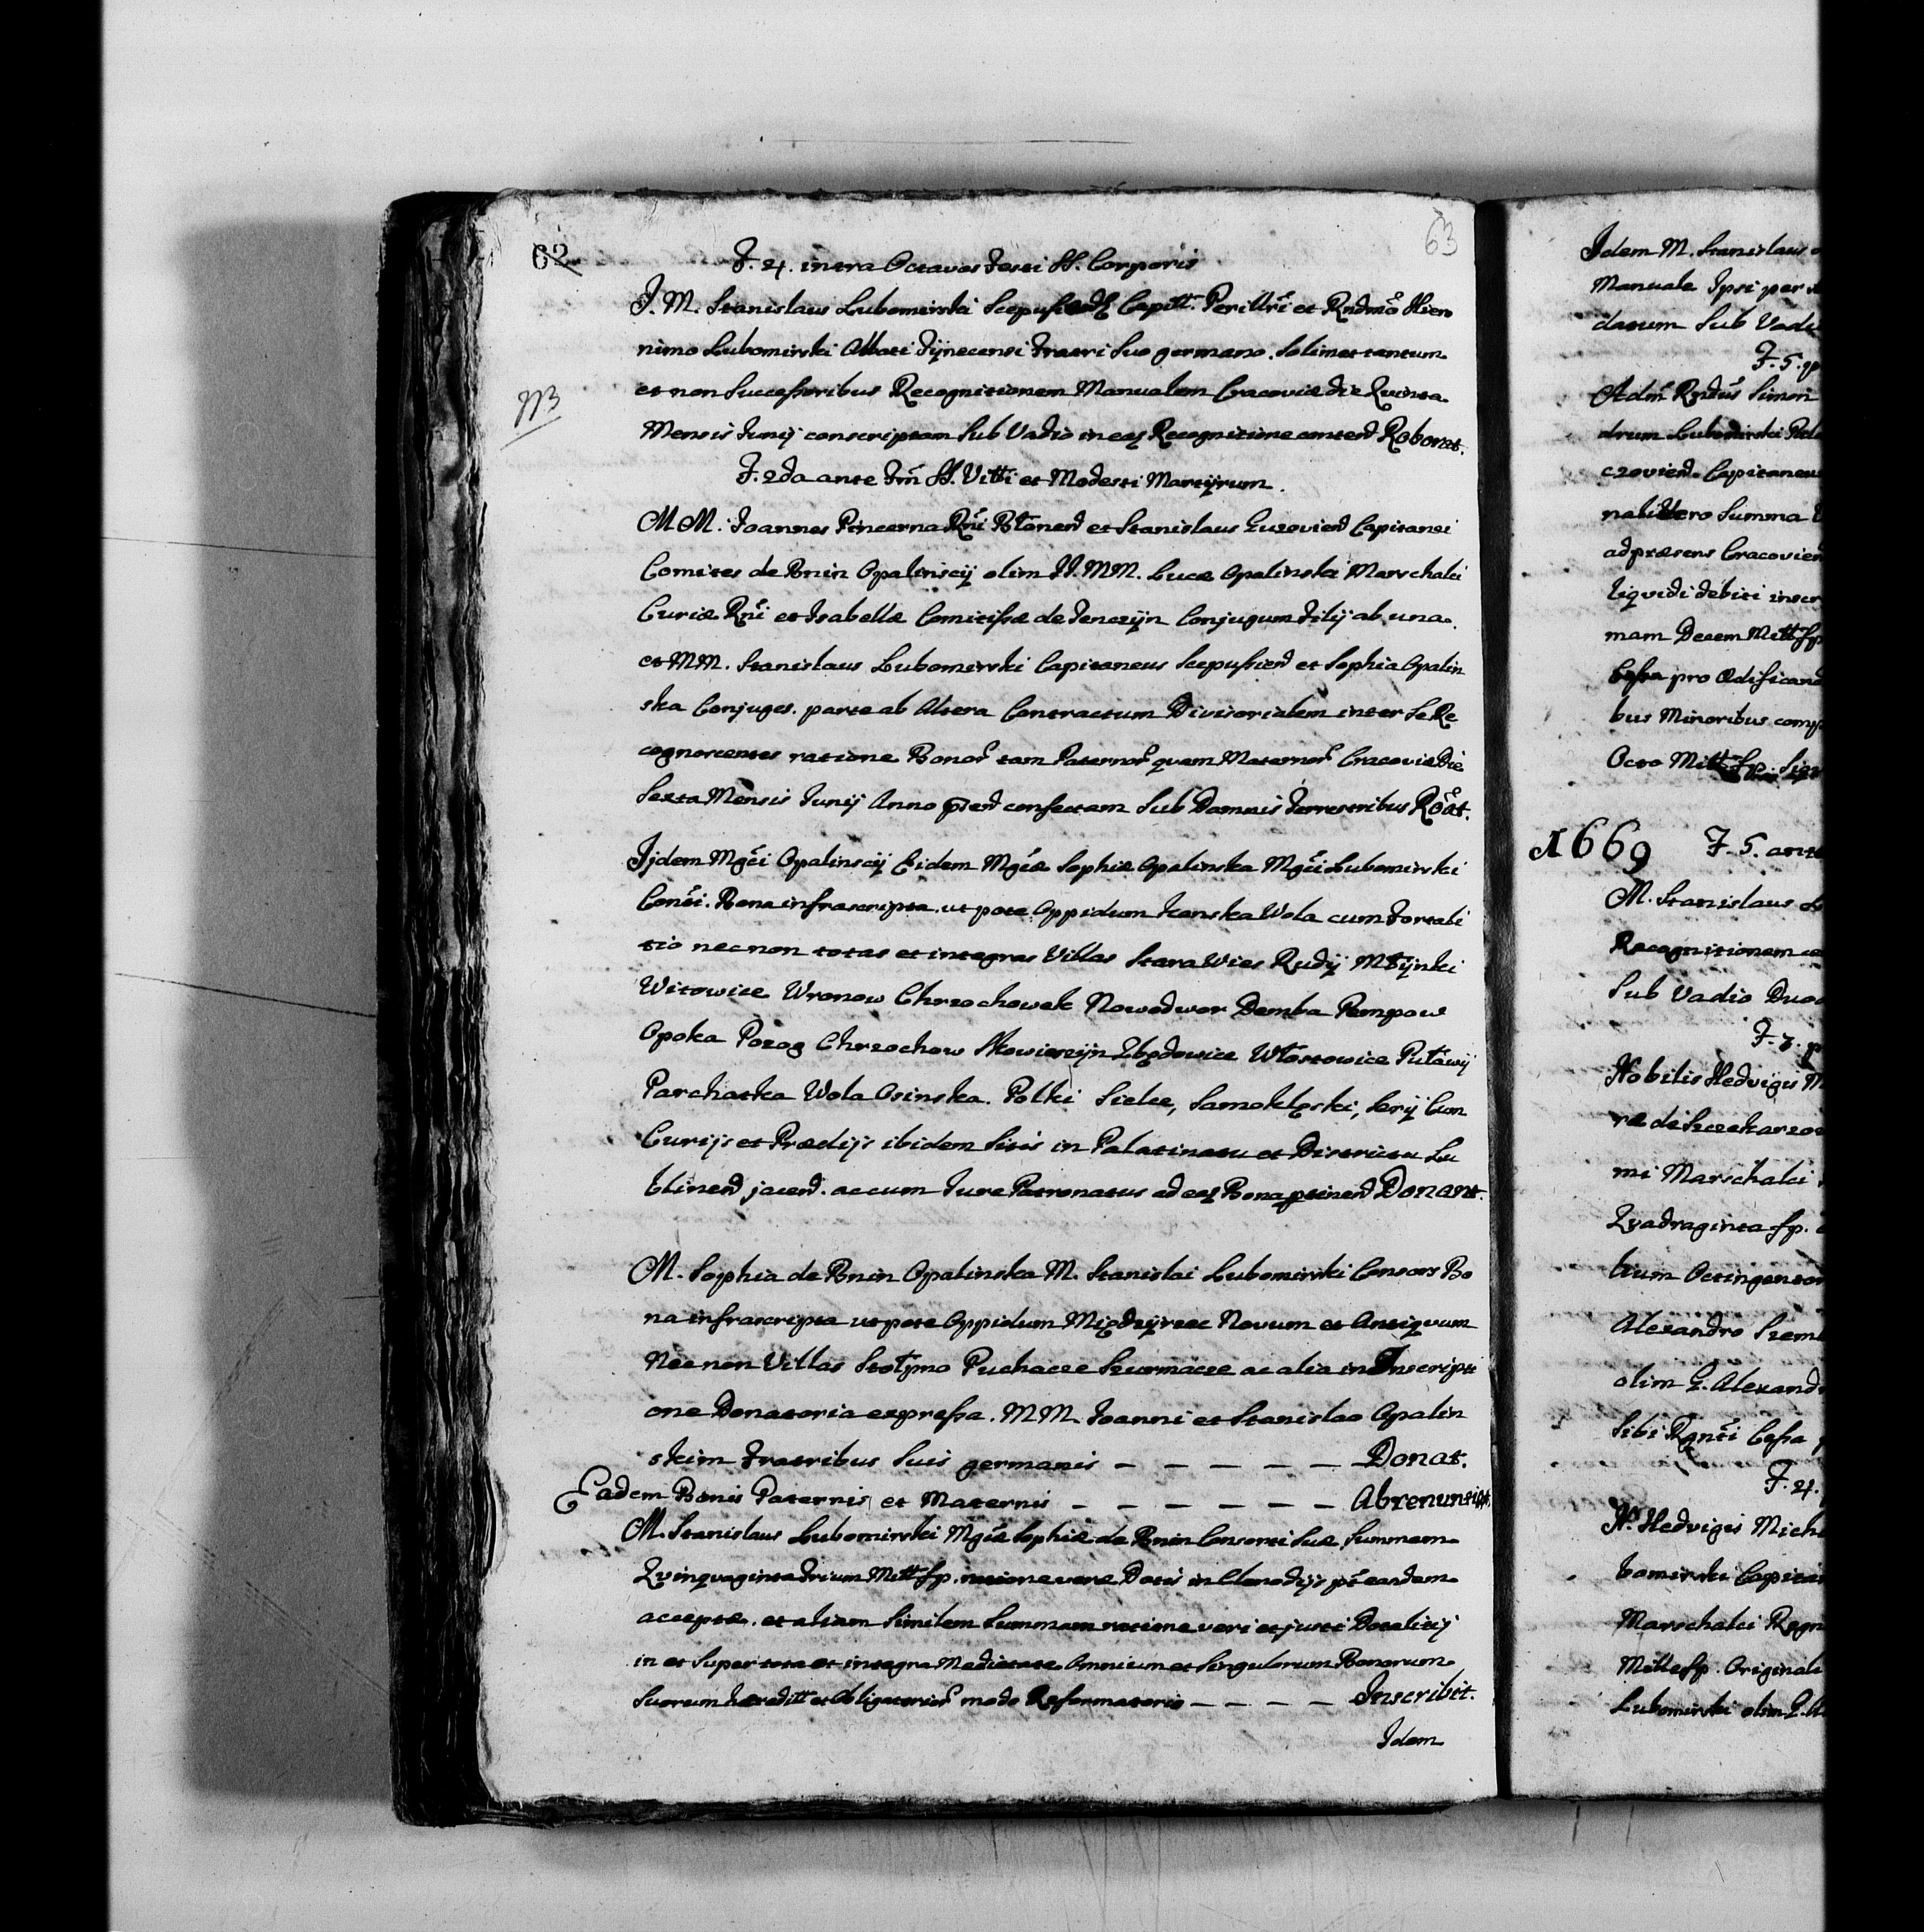 62
63
F. 4. intra Octavas Festi SS. Corporis
I. M. Stanislaus Lubomirski Scepusien Capitt. Perillri et Rndmo Hiero
nimo Lubomirski Abbati Tÿnecensi Fratri Suo germano. Solimet tantum
et non Successoribus Recognitionem Manualem Cracoviæ die Quinta
NB
Mensis Junij conscriptam Sub Vadio in eaq Recognitione contend Roborat.
F. 2da ante Fm SS. Vitti et Modesti Martÿrum.
MM. Joannes Pincerna Rni Posnand et Stanislaus Guzoviend Capitanei
Comites de Bnin Opalinscij olim II. MM. Lucæ Opalinski Marschalci
Curiæ Rni et Isabellæ Comitissæ de Tenczÿn Conjugum Filij ab una.
et MM. Stanislaus Lubomirski Capitaneus Scepusiend et Sophia Opalin
ska Conjuges. parte ab Altera Contractum Divisorialem inter Se Re
cognoscentes ratione Bonor tam Paternor quam Maternor Cracoviæ Die
Sexta Mensis Junij Anno confectam Sub Damnis Terrestribus Roat.
Ijdem Mgci Opalinscij Eidem Mgcæ Sophiæ Opalinska Mgci Lubomirski
Consi. Bona infrascripta. ut pote Oppidum Konska Wola cum Fortali
tio nec non totas et integras Villas Stara Wies Rudÿ Młÿnki
Witowice Wronow Chrzochowek Nowodwor Demba Pempow
Opoka Pozog Chrzochow Skowieszÿn Zbędowice Włostowice Puławÿ
Parchatka Wola Osinska. Polki Sielce, Samoklęski, Serÿ Cum
Curijs et Prædijs ibidem Sitis in Palatinatu et Districtu Lu
blinend jacend. ac cum Jure Patronatus ad eaq Bona ptinend Donant.
M. Sophia de Bnin Opalinska M. Stanislai Lubomirski Consors Bo
na infrascripta ut pote Oppidum Międzÿrzec Novum et Antiqvum
Nec non Villas Stołpno Puchacze Szurmacze ac alia in Inscripti
one Donatoria expressa. MM. Joanni et Stanislao Opalin
skim Fratribus Suis germanis – – – – – Donat.
Eadem Bonis Paternis et Maternis – – – – – – Abrenuntiat.
M. Stanislaus Lubomirski Mgcæ Sophiæ de Bnin Consorti Suæ Summam
Qvinqvaginta Trium Mill. fp. ratione veræ Dotis in Clenodijs p eandem
acceptæ. et aliam Similem Summam ratione veri et justi Dotalitij
in et Super tota et integra Medietate Omnium et Singulorum Bonorum
Suorum hæreditt et Obligatorior modo Reformatorio – – – – Inscribit.
Idem
Idem M. Stanislaus
Manuale Ipsi per
datum Sub Vadi
F. 5. p
Adm Rndus Simon
drum Lubomirski
czoviend. Capitaneu
Summa
ad præsens Cracovien
liqvidi debiti inscr
mam Decem Mill fp
Cessa pro Ædificand
bus Minoribus comp
Octo Mill fp.
1669 F. 5. ante
M. Stanislaus L
Recognitionem
Sub Vadio Duo
F. 3. p
Nobilis Hedvigis M
ræ de
mi Marschalci
Qvadraginta fp.
lium Octingentor
Alexandro Szem
olim G. Alexand
Sibi Cessa
F. 4.
N. Hedvigis Mich
bomirski Capitan
Marschalci Regn
Mille fp. Originali
Lubomirski olim G. A